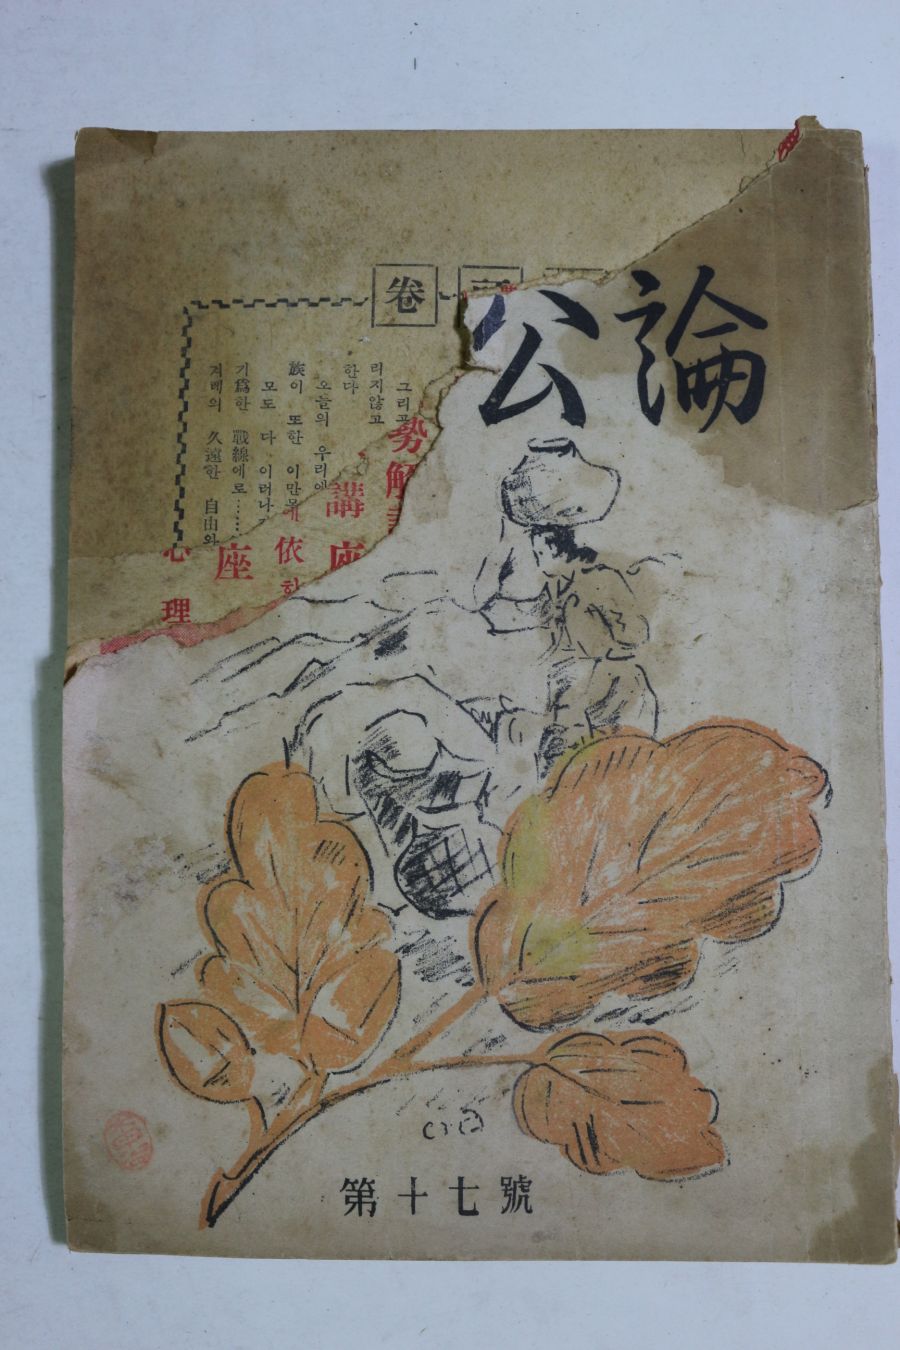 公論
卷
그리고
리지않고
한다
오늘의 우리에
族이 또한 이만
모도 다 이러나
기爲한 戰線에로……
겨레의 久遠한 自由와
勢解
講座
依
座
心理
第十七號